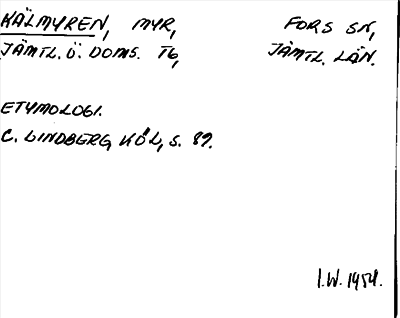 KÄLMYREN, MYR, FORS SN,
JÄMTL. Ö. DOMS. TG, JÄMTL. LÄN.
ETYMOLOGI.
C. LINDBERG, KÖL, S. 89.
I.W. 1954.